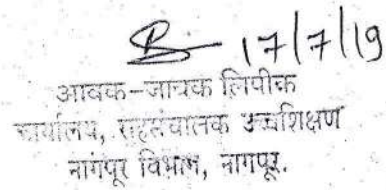 17/7/19
आवक-जावक लिपीक
कार्यालय, सहसंचालक उच्चशिक्षण
नागपूर विभाग, नागपूर.